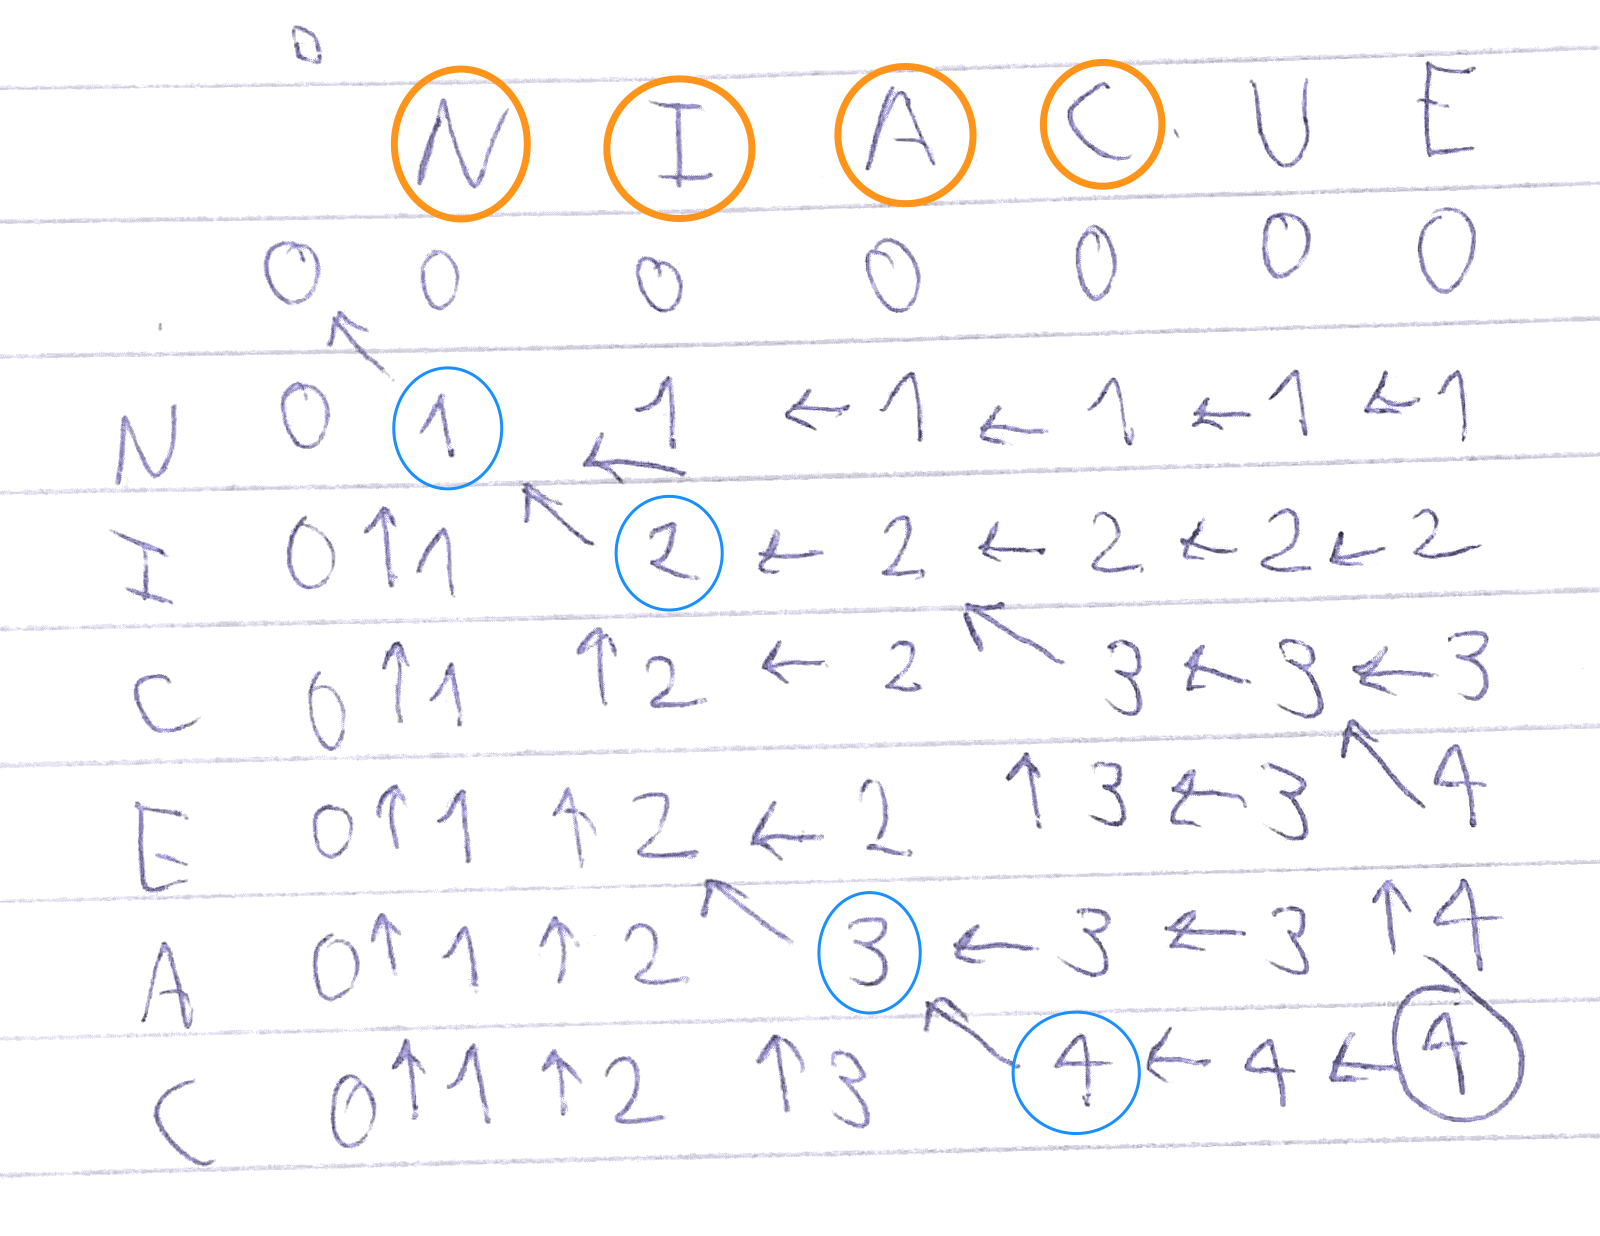 0
N I A C U E
0 0 0 0 0 0 0
N 0 1 1 ← 1 ← 1 ← 1 ← 1
I 0 ↑ 1 ↖ 2 ← 2 ← 2 ← 2 ← 2
C 0 ↑ 1 ↑ 2 ← 2 ↖ 3 ← 3 ← 3
E 0 ↑ 1 ↑ 2 ← 2 ↑ 3 ← 3 ↖ 4
A 0 ↑ 1 ↑ 2 ↖ 3 ← 3 ← 3 ↑ 4
C 0 ↑ 1 ↑ 2 ↑ 3 ↖ 4 ← 4 ← 4